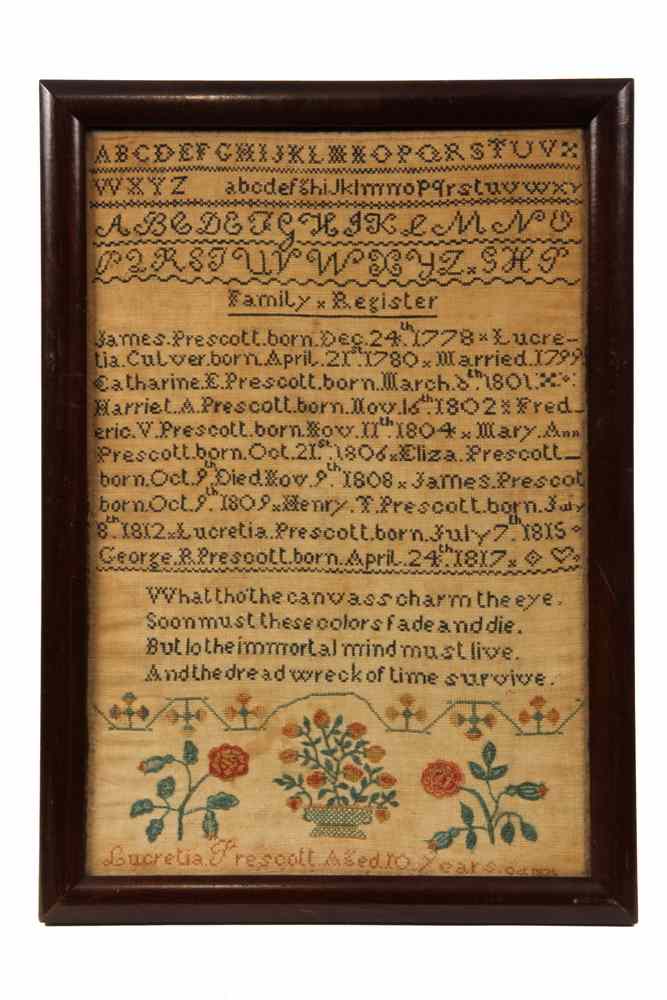 ABCDEFGHIJKLMNOPQRSTUVX
WXYZ abcdefghiJklmnopqrstuvwxy
ABCDEFGHIJKLMNO
PQRSTUVWXYZ×GHP
Family×Register
James.Prescott.born.Dec.24th.1778×Lucre-
tia.Culver.born.April.21st.1780×Married.1799
Catharine.E.Prescott.born.March.8th.1801
Harriet.A.Prescott.born.Nov.16th.1802××Fred-
eric.V.Prescott.born.Nov.11th.1804×Mary.Ann
Prescott.born.Oct.21st.1806×Eliza.Prescott-
born.Oct.9th.Died.Nov.9th.1808×James.Prescot
born.Oct.9th.1809×Henry.T.Prescott.born.July
8th.1812×Lucretia.Prescott.born.July7th.1815
George.R.Prescott.born.April.24th.1817×
What tho' the canvass charm the eye.
Soon must these colors fade and die.
But lo the immortal mind must live.
And the dread wreck of time survive.
Lucretia.Prescott.Aged.10.Years.Oct